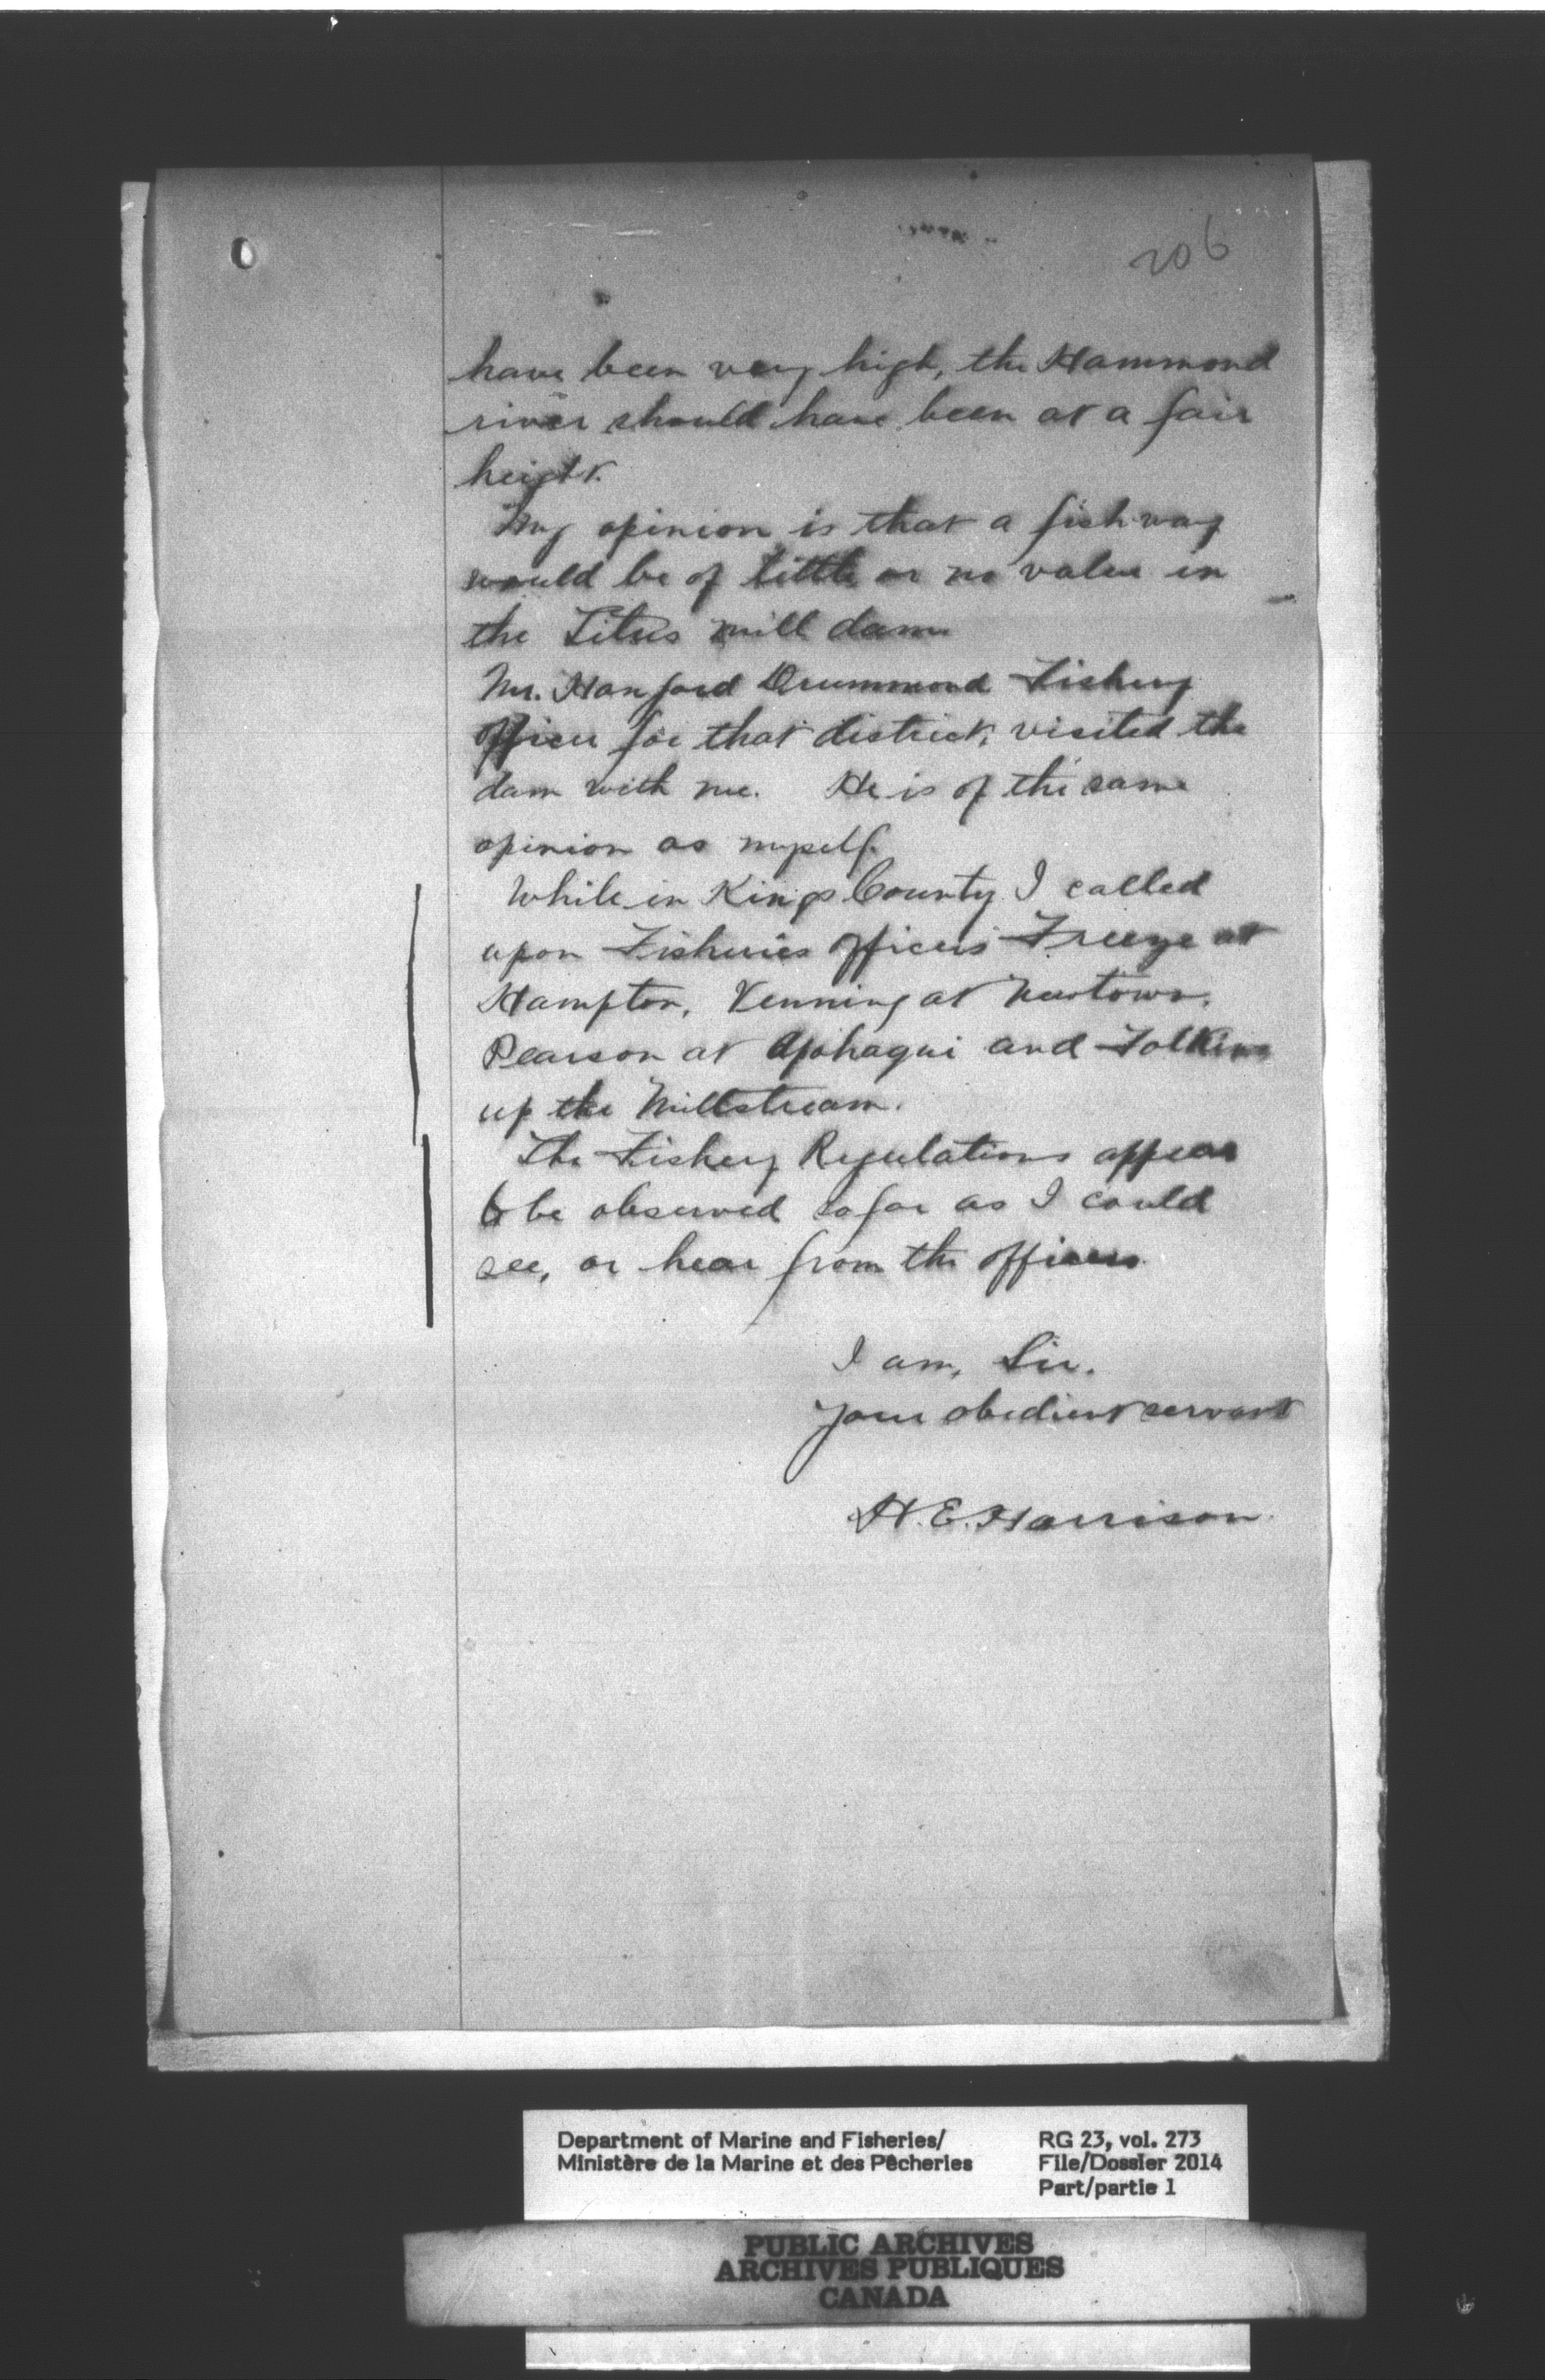 206
have been very high, the Hammond
river should have been at a fair
height.
My opinion is that a fish-way
would be of little or no value in
the Titus mill dam
Mr. Hanford Drummond Fishery
Officer for that district, visited the
dam with me. He is of the same
opinion as myself.
While in Kings County I called
upon Fisheries Officers Freeze at
Hampton, Venning at Newtown,
Pearson at Apohaqui and Folkins
up the Millstream.
The Fishery Regulations appear
to be observed so far as I could
see, or hear from the officers.
I am, Sir.
Your obedient servant
H. E. Harrison
Department of Marine and Fisheries/
Ministère de la Marine et des Pêcheries
RG 23, vol. 273
File/Dossier 2014
Part/partie 1
PUBLIC ARCHIVES
ARCHIVES PUBLIQUES
CANADA